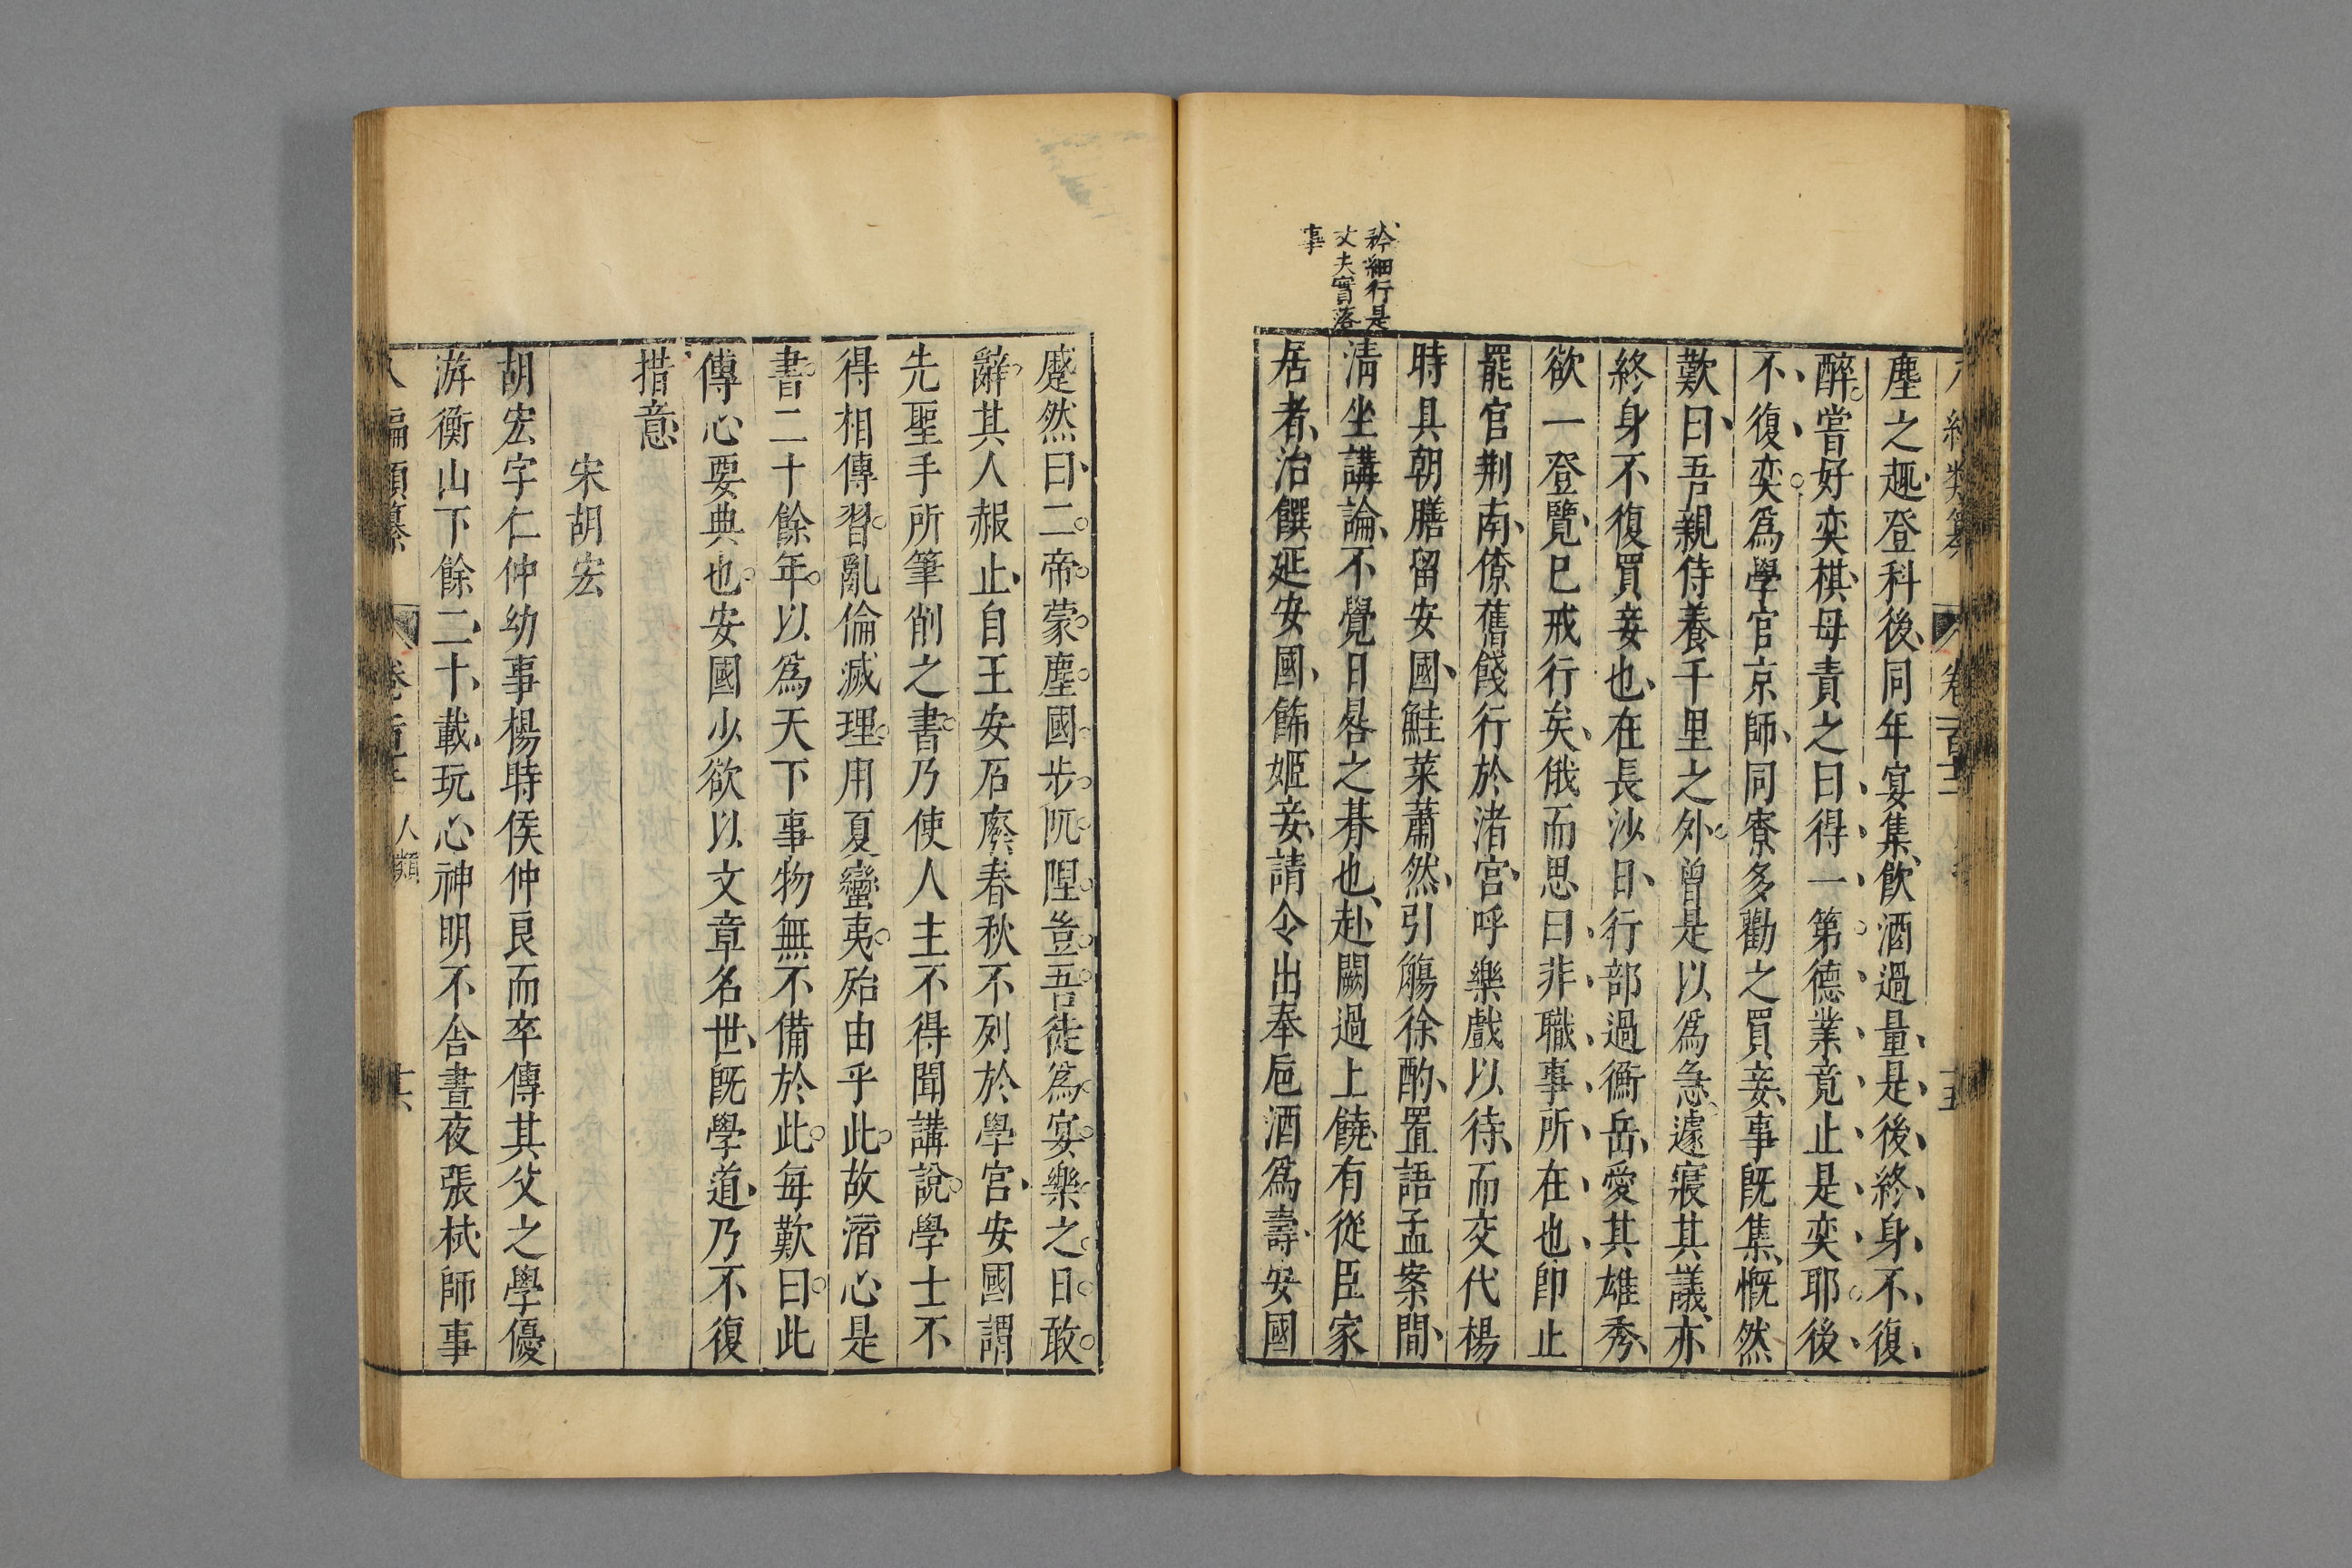 塵之趣登科後同年宴集飲酒過量是後終身不復
醉嘗好奕棋母責之曰得一第德業竟止是奕耶後
不復奕爲學官京師同寮多勸之買妾事旣集慨然
歎曰吾親侍養千里之外曾是以爲急遽寢其議亦
終身不復買妾也在長沙日行部過衡岳愛其雄秀
欲一登覽已戒行矣俄而思曰非職事所在也卽止
罷官荆南僚舊餞行於渚宮呼樂戲以待而交代楊
時具朝膳留安國鮭菜蕭然引觴徐酌置語孟案間
淸坐講論不覺日晷之暮也赴闕過上饒有從臣家
居者治饌延安國飾姬妾請令出奉巵酒爲壽安國
矜細行是
丈夫實落
事
蹙然曰二帝蒙塵國步阢隉豈吾徒爲宴樂之日敢
辭其人赧止自王安石廢春秋不列於學宮安國謂
先聖手所筆削之書乃使人主不得聞講說學士不
得相傳習亂倫滅理用夏蠻夷殆由乎此故潛心是
書二十餘年以爲天下事物無不備於此每歎曰此
傳心要典也安國少欲以文章名世旣學道乃不復
措意
宋胡宏
胡宏字仁仲幼事楊時侯仲良而卒傳其父之學優
游衡山下餘二十載玩心神明不舍晝夜張栻師事
編類纂 卷百 人類 十六